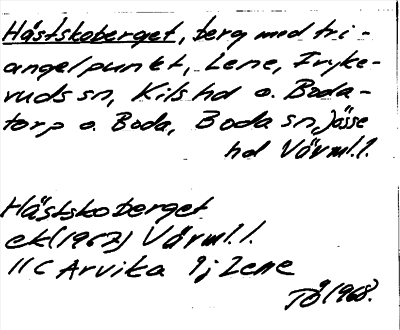 Hästskoberget, berg med tri-
angelpunkt, Lene, Fryke-
ruds sn, Kils hd o. Boda-
torp o. Boda, Boda sn, Jösse
hd Värml. l.
Hästskoberget
ek (1967) Värml. l.
11 C Arvika 9j Lene
TÅ 1968.